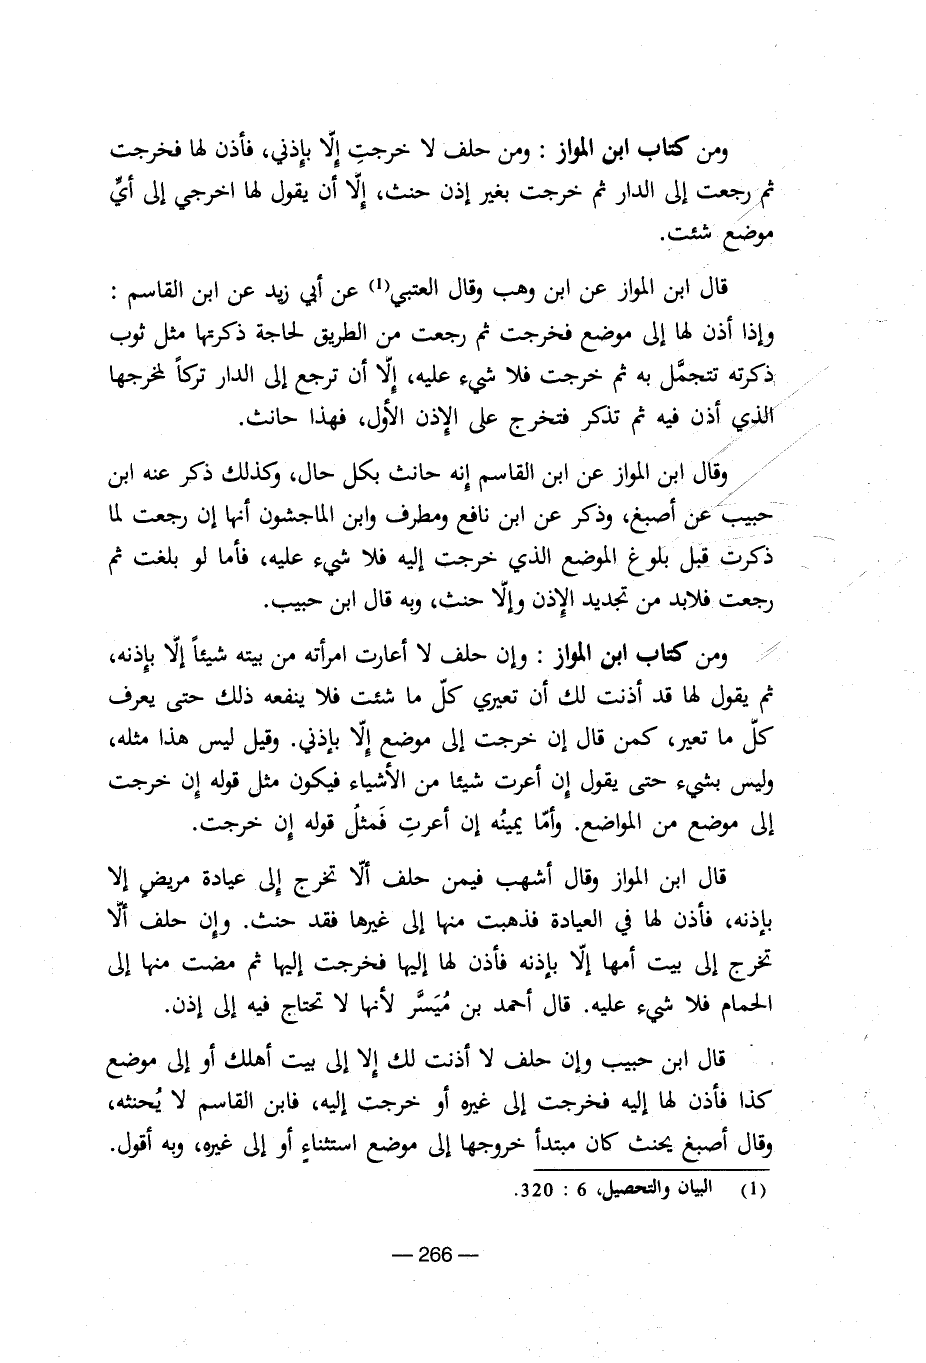 ومن كتاب ابن المواز : ومن حلف لا خرجتِ إلّا بإذني، فأذن لها فخرجت
ثم رجعت إلى الدار ثم خرجت بغير إذن حنث، إلّا أن يقول لها اخرجي إلى أيِّ
موضع شئت.
قال ابن المواز عن ابن وهب وقال العتبي(1) عن أبي زيد عن ابن القاسم :
وإذا أذن لها إلى موضع فخرجت ثم رجعت من الطريق لحاجة ذكرتها مثل ثوب
ذكرته تتجمَّل به ثم خرجت فلا شيء عليه، إلّا أن ترجع إلى الدار تركاً لمخرجها
الذي أذن فيه ثم تذكر فتخرج على الإذن الأول، فهذا حانث.
وقال ابن المواز عن ابن القاسم إنه حانث بكل حال، وكذلك ذكر عنه ابن
حبيب عن أصبغ، وذكر عن ابن نافع ومطرف وابن الماجشون أنها إن رجعت لما
ذكرت قبل بلوغ الموضع الذي خرجت إليه فلا شيء عليه، فأما لو بلغت ثم
رجعت فلابد من تجديد الإذن وإلّا حنث، وبه قال ابن حبيب.
ومن كتاب ابن المواز : وإن حلف لا أعارت امرأته من بيته شيئاً إلّا بإذنه،
ثم يقول لها قد أذنت لك أن تعيري كلّ ما شئت فلا ينفعه ذلك حتى يعرف
كلّ ما تعير، كمن قال إن خرجت إلى موضع إلّا بإذني. وقيل ليس هذا مثله،
وليس بشيء حتى يقول إن أعرت شيئا من الأشياء فيكون مثل قوله إن خرجت
إلى موضع من المواضع. وأمّا يمينُه إن أعرتِ فَمثلُ قوله إن خرجت.
قال ابن المواز وقال أشهب فيمن حلف ألّا تخرج إلى عيادة مريضٍ إلا
بإذنه، فأذن لها في العيادة فذهبت منها إلى غيرها فقد حنث. وإن حلف ألّا
تخرج إلى بيت أمها إلّا بإذنه فأذن لها إليها فخرجت إليها ثم مضت منها إلى
الحمام فلا شيء عليه. قال أحمد بن مُيَسَّر لأنها لا تحتاج فيه إلى إذن.
قال ابن حبيب وإن حلف لا أذنت لك إلا إلى بيت أهلك أو إلى موضع
كذا فأذن لها إليه فخرجت إلى غيره أو خرجت إليه، فابن القاسم لا يُحنثه،
وقال أصبغ يحنث كان مبتدأ خروجها إلى موضع استثناءٍ أو إلى غيره، وبه أقول.
(1) البيان والتحصيل، 6 : 320.
— 266 —